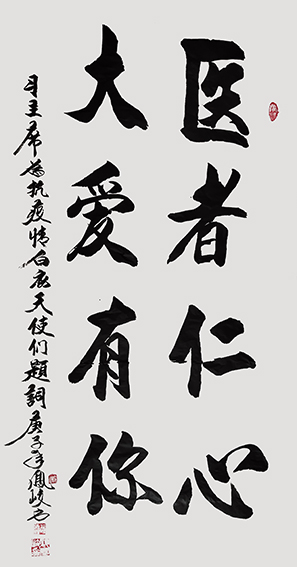 医者仁心
大爱有你
主席为抗疫情白衣天使们题詞庚子年鳳岐书